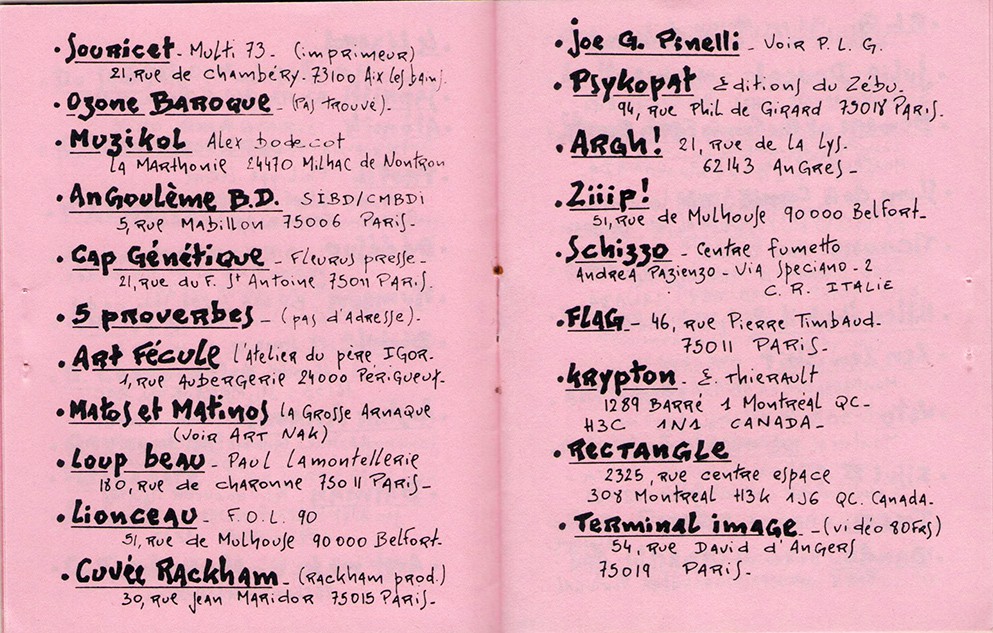 • Souricet - Multi 73 - (imprimeur)
21, rue de Chambéry - 73100 Aix les bains.
• Ozone Baroque - (pas trouvé) -
• Muzikol Alex Bodecot
La Marthonie 24470 Milhac de Nontron
• Angoulème B.D. SIBD/CMBDi
5, rue Mabillon 75006 Paris -
• Cap Génétique - Fleurus presse -
21, rue du F. St Antoine 75011 Paris.
• 5 proverbes - (pas d'adresse) -
• Art Fécule l'Atelier du père IGOR -
1, rue Aubergerie 24000 Périgueux -
• Matos et Matinos La Grosse Arnaque
(voir ART NAK)
• Loup beau - Paul Lamontellerie
180, rue de charonne 75011 Paris -
• Lionceau - F.O.L. 90
51, rue de Mulhouse 90000 Belfort -
• Cuvée Rackham - (Rackham prod.)
30, rue Jean Maridor 75015 Paris -
• Joe G. Pinelli - Voir P.L.G.
• Psykopat Editions du Zébu -
94, rue Phil de Girard 75018 Paris.
• ARGH! 21, rue de la Lys -
62143 Angres -
• Ziiip!
51, rue de Mulhouse 90000 Belfort -
• Schizzo - Centre fumetto
Andrea Pazienzo - Via Speciano - 2
C.R. ITALIE
• FLAG - 46, rue Pierre Timbaud -
75011 Paris -
• Krypton - E. Thierault
1289 Barré 1 Montréal QC -
H3C 1N1 CANADA -
• Rectangle
2325, rue centre espace
308 Montreal H3K 1J6 QC. Canada -
• Terminal image - (vidéo 80Frs)
54, rue David d'Angers
75019 Paris -